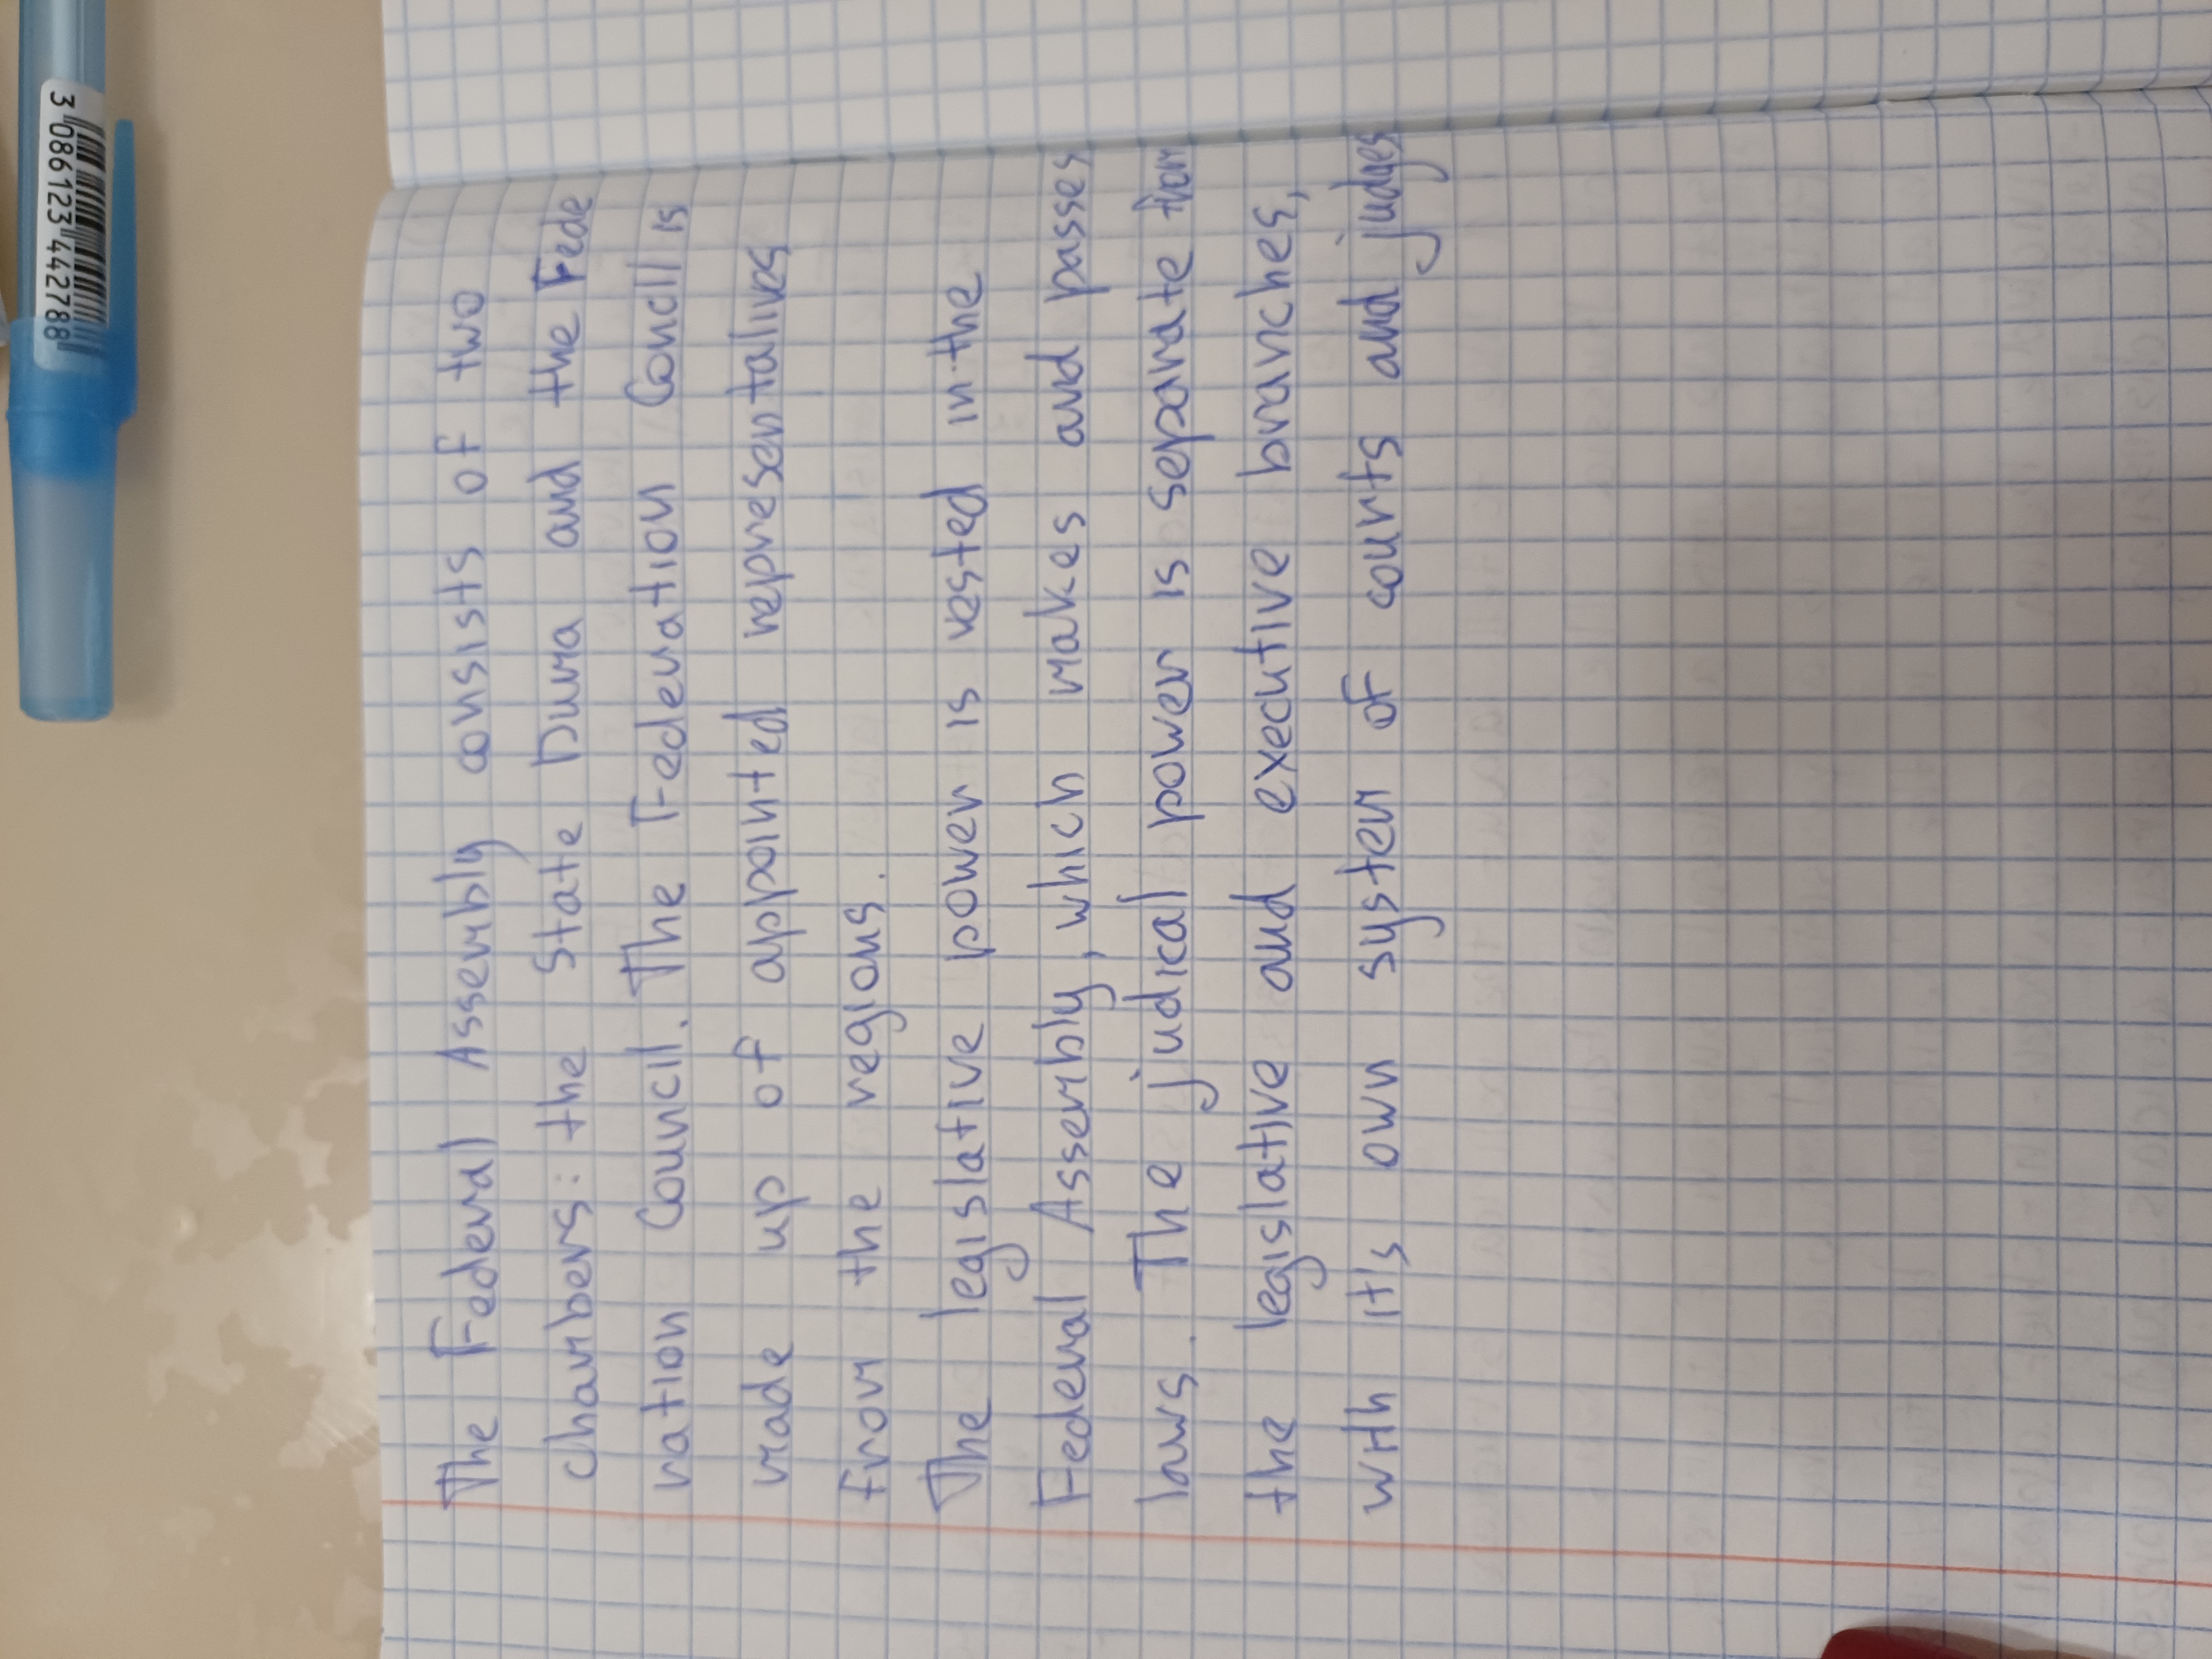 The Federal Assembly consists of two
chambers: the State Duma and the Fede
ration Council. The Federation Concil is
made up of appointed representalives
from the regions.
The legislative power is vested in the
Federal Assembly, which makes and passes
laws. The judical power is separate from
the legislative and executive branches,
with it's own system of courts and judges
3 086123 442788